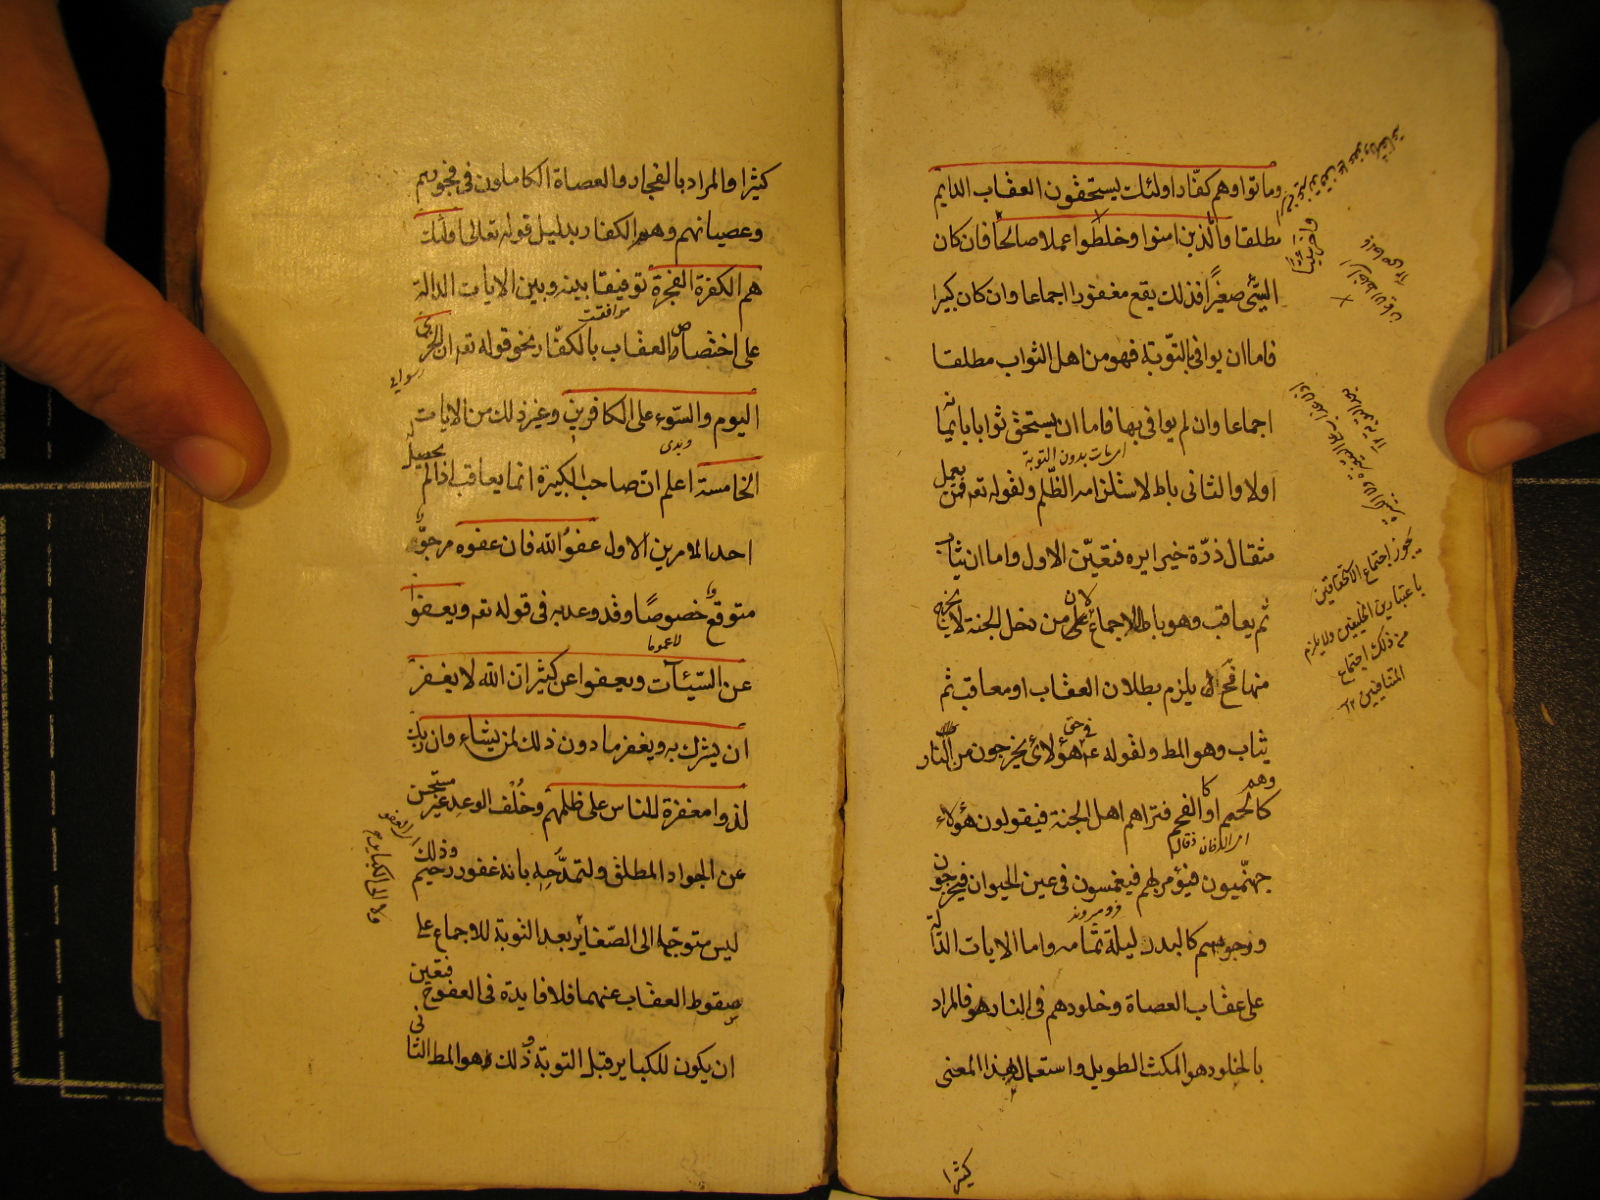 وماتوا وهم كفّار اولئك يستحقون العقاب الدايم
مطلقا والّذين امنوا وخلطوا عملا صالحا فان كان
واخر سيّئا
السّئ صغيرًا فذلك يقع مغفورا اجماعا وان كان كبيرا
فاما ان يوافى بالتّوبة فهو من اهل الثواب مطلقا
اجماعا وان لم يوافى بها فاما ان يستحق ثوابا بايمانه
اولا والثانى باطل لاستلزامه الظّلم ولقوله تعم فمن يعمل
مثقال ذرّة خيرا يره فتعيّن الاول واما ان يثاب
ثم يعاقب وهو باطل للاجماع على ان من دخل الجنة لا يخرج
منها فح يلزم بطلان العقاب او معاقب ثم
يثاب وهو المط ولقوله عم فى حق هؤلائ يخرجون من النار
وهم
كالحمم او كالفحم فتراهم اهل الجنة فيقولون هؤلاء
جهنّميون فيؤمر بهم فيغمسون فى عين الحيوان فيخرجون
ووجوههم كالبدر ليلة تمّامه واما الايات الدّالة
على عقاب العصاة وخلودهم فى النار هو فالمراد
بالخلود هو المكث الطويل واستعماله بهذا المعنى
كثيرا
يجوز اجتماع الاستحقاقين
باعتبارين المختلفين ولا يلزم
من ذلك اجتماع
المتنافيين ١٢
كثيرا والمراد بالفجار والعصاة الكاملون فى فجورهم
وعصيانهم وهم الكفار بدليل قوله تعالى اولئك
هم الكفرة الفجرة توفيقا بينه وبين الايات الدالة
موافقت
على اختصاص العقاب بالكفّار نحو قوله تعم ان الخزى
رسوايى
اليوم والسّوء على الكافرين وغير ذلك من الايات
وبدى
الخامسة اعلم ان صاحب الكبيرة انما يعاقب اذا لم يحصل له
احد الامرين الاول عفو الله فان عفوه مرجوّ
متوقع خصوصًا وقد وعد به فى قوله تعم ويعفوا
لا عموما
عن السّيئات ويعفوا عن كثير ان الله لا يغفر
ان يشرك به ويغفر ما دون ذلك لمن يشاء وان ربك
لذوا مغفرة للناس على ظلمهم وخُلْف الوعد غير مستحسن
عن الجواد المطلق ولتمدّحه بانه غفور رحيم وذلك
ليس متوجّها الى الصّغاير بعد التوبة للاجماع على
سقوط العقاب عنهما فلا فايدة فى العفو ح فتعين
ان يكون للكبار قبل التوبة وذلك هو المط الثانى